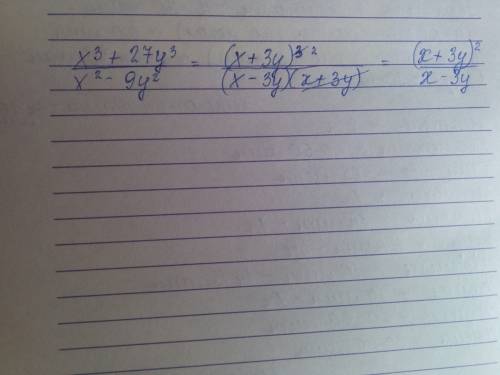 x³ + 27y³ / x² - 9y² = (x+3y)³ ² / (x-3y)(x+3y) = (x+3y)² / x-3y